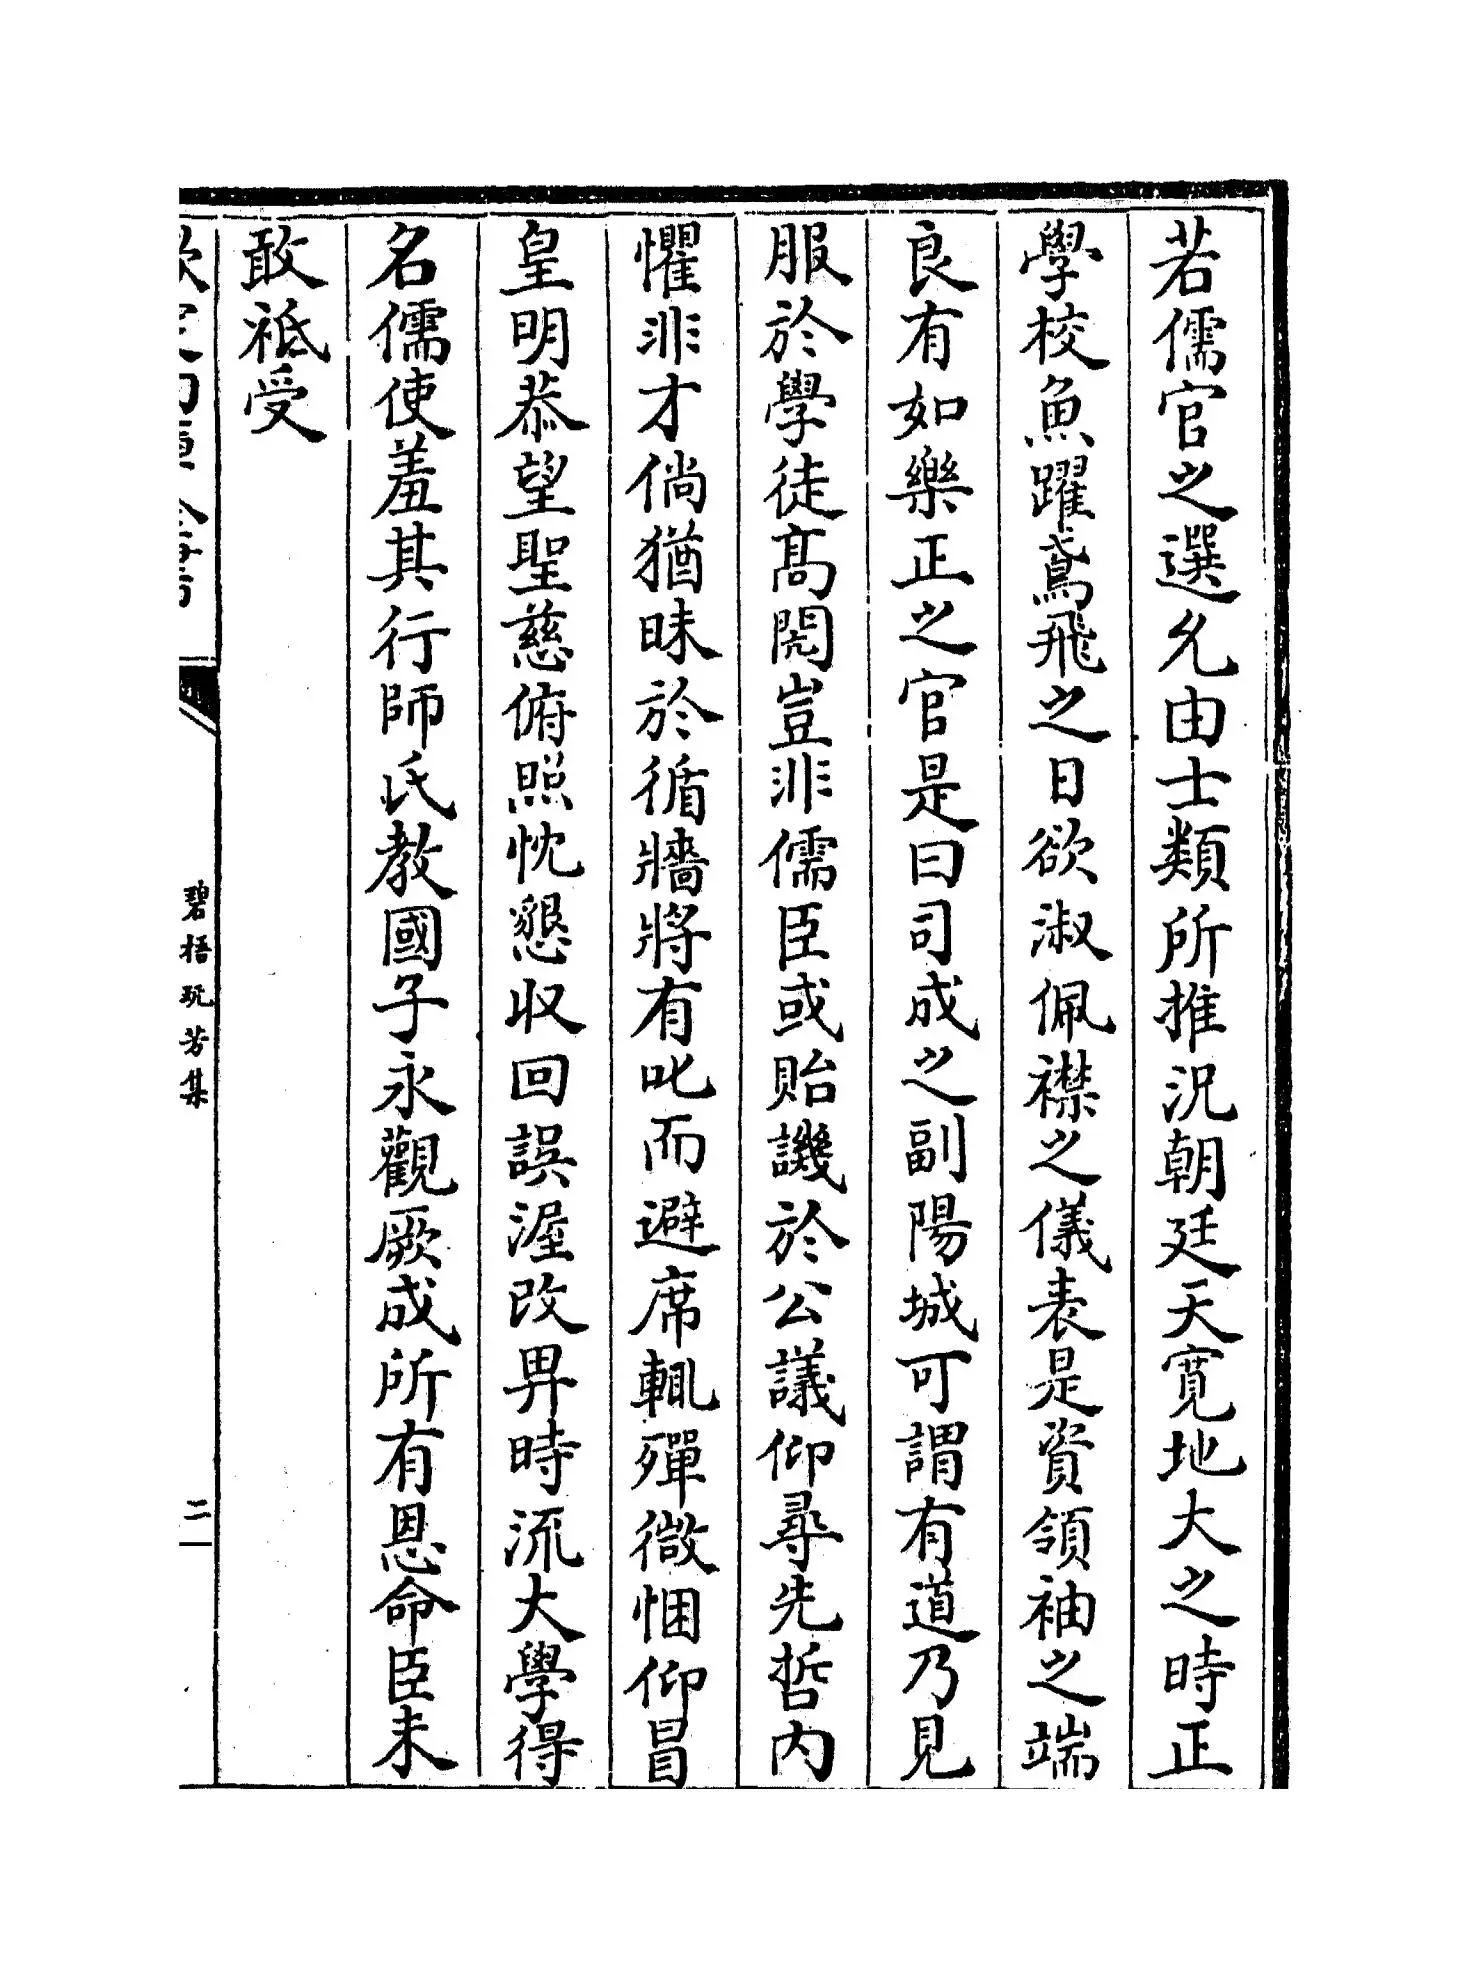 若儒官之選允由士類所推況朝廷天寛地大之時正
學校魚躍鳶飛之日欲淑佩襟之儀表是資領袖之端
良有如樂正之官是曰司成之副陽城可謂有道乃見
服於學徒髙閌豈非儒臣或貽譏於公議仰尋先哲内
懼非才倘猶昧於循牆將有叱而避席輒殫微悃仰冒
皇明恭望聖慈俯照忱懇収回誤渥改畀時流大學得
名儒使羞其行師氏教國子永觀厥成所有恩命臣未
敢祗受
碧梧玩芳集
二